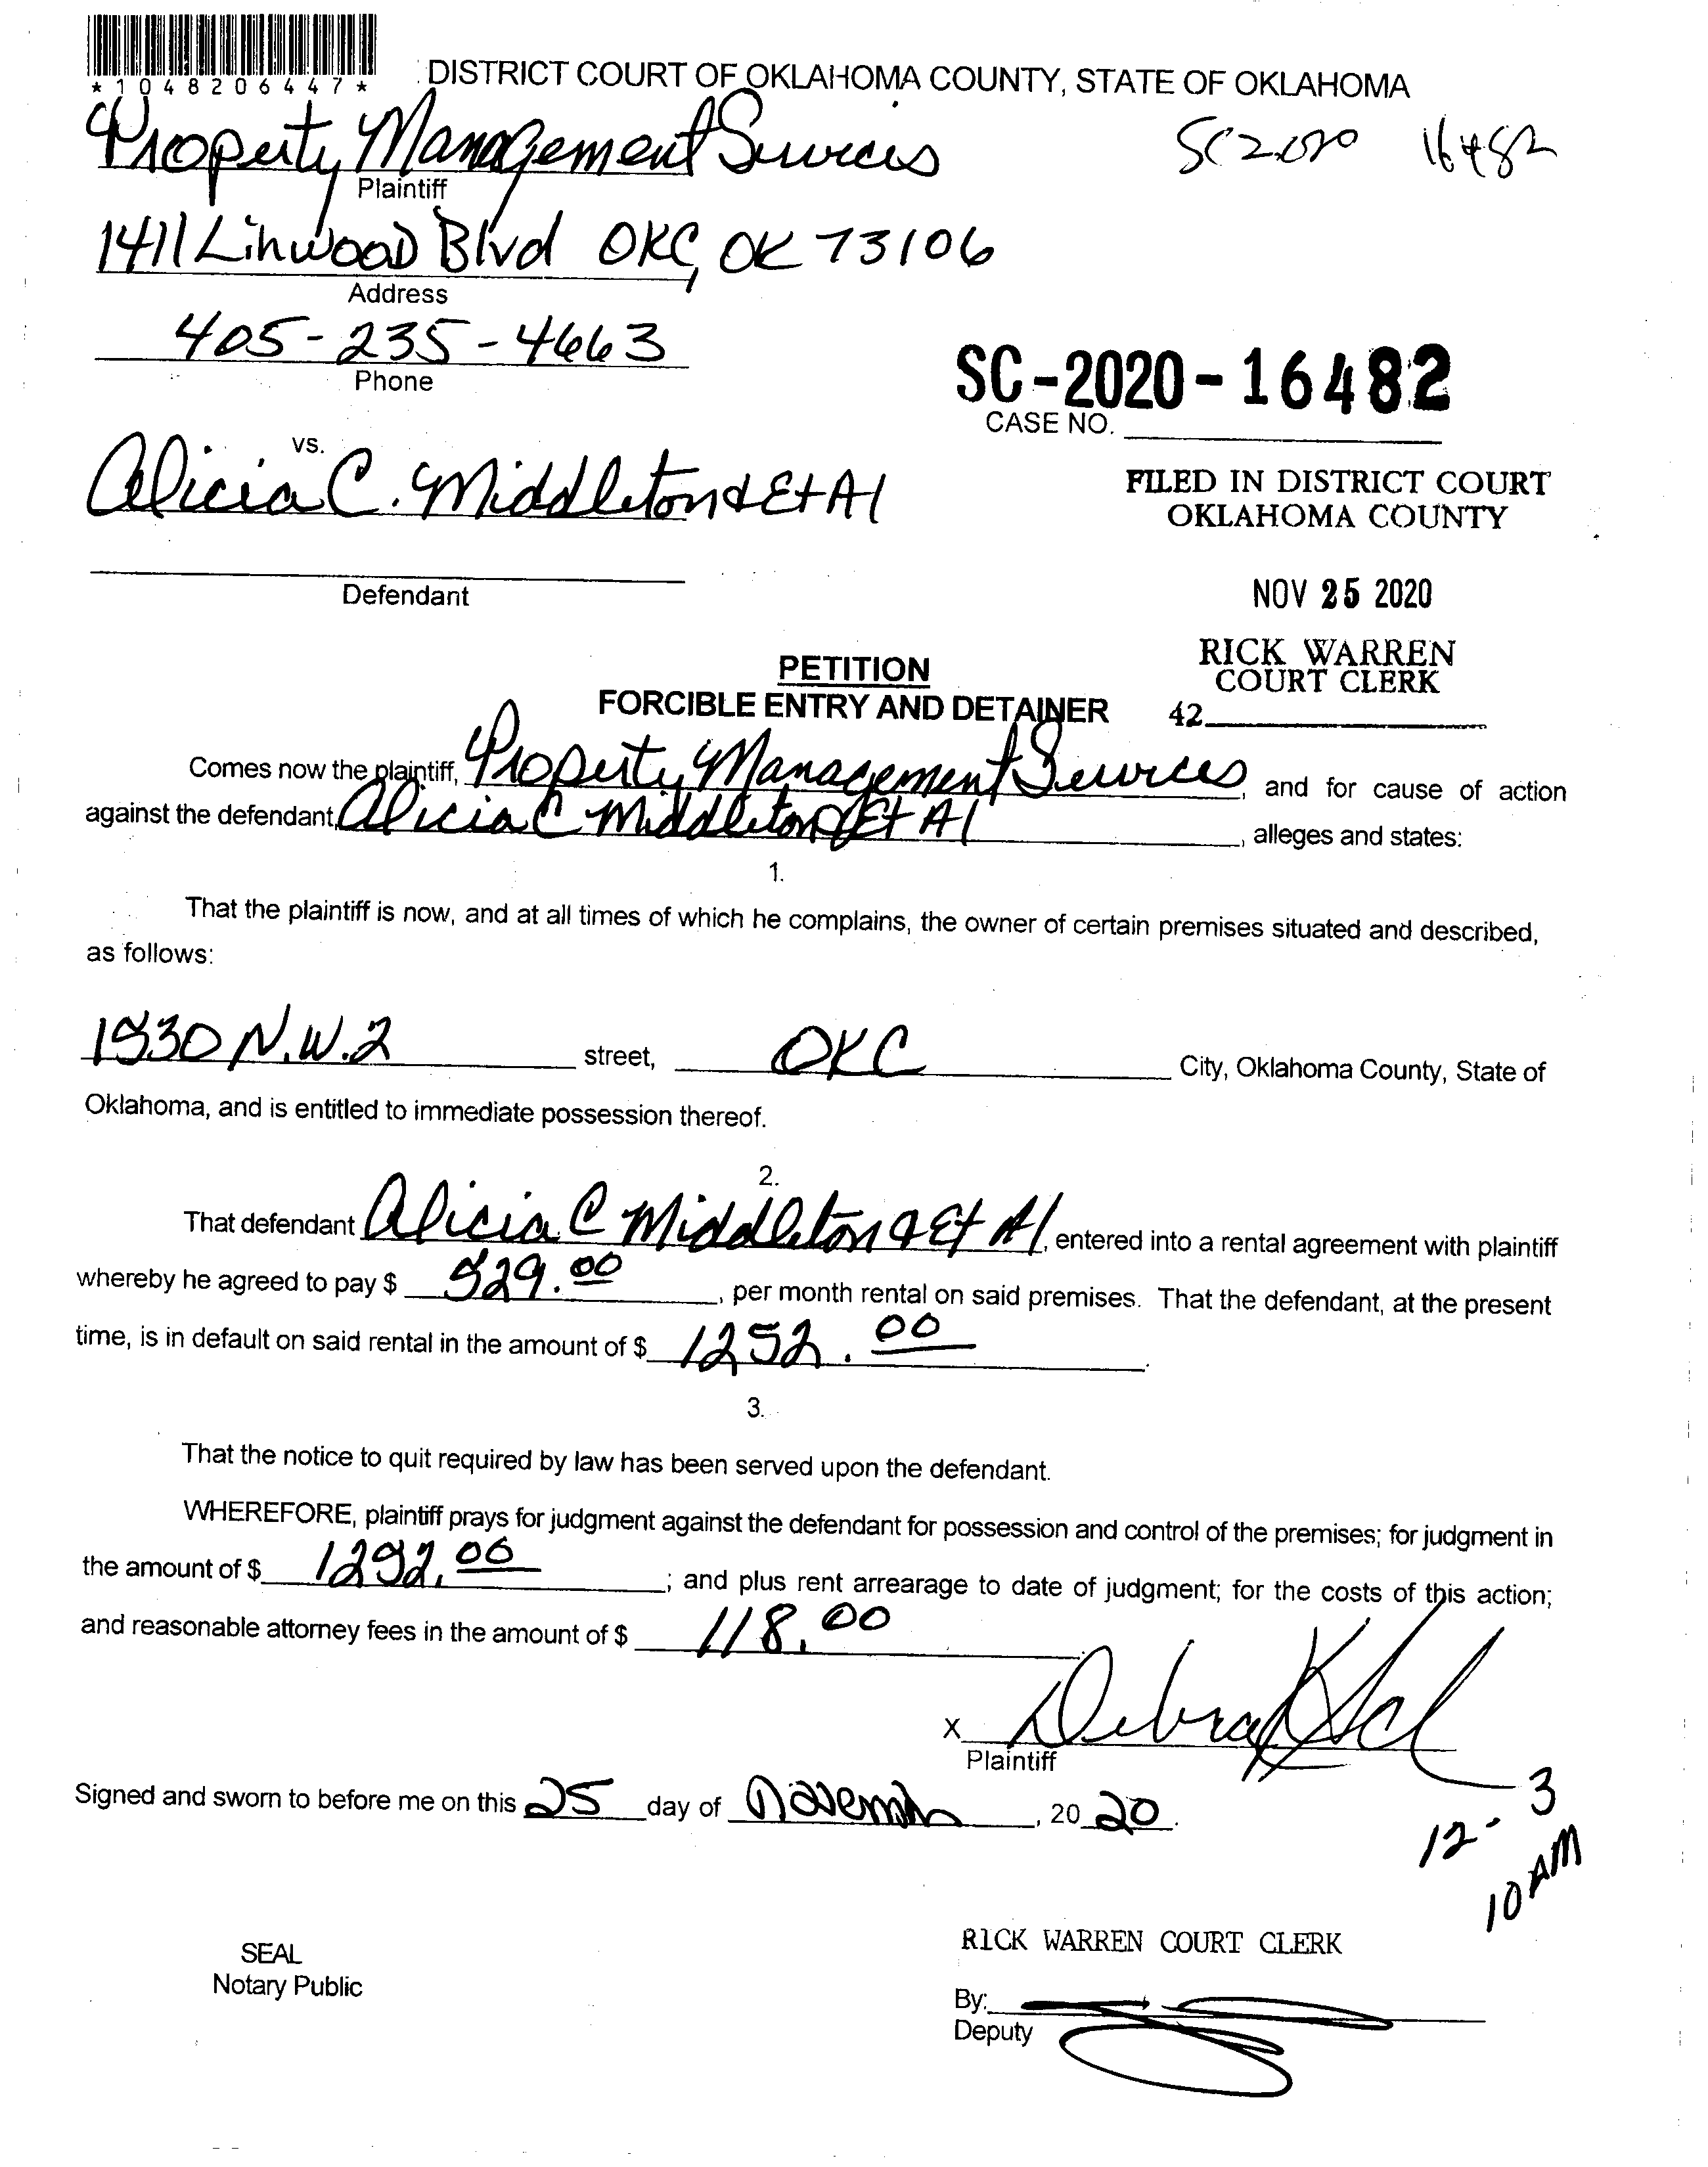 *1048206447*
DISTRICT COURT OF OKLAHOMA COUNTY, STATE OF OKLAHOMA
Property Management Services
SC2020 16482
Plaintiff
1411 Linwood Blvd OKC, OK 73106
Address
405-235-4663
Phone
SC-2020-16482
CASE NO.
vs.
Alicia C. Middleton & Et Al
FILED IN DISTRICT COURT
OKLAHOMA COUNTY
Defendant
NOV 25 2020
RICK WARREN
COURT CLERK
42
PETITION
FORCIBLE ENTRY AND DETAINER
Comes now the plaintiff, Property Management Services, and for cause of action
against the defendant, Alicia C Middleton & Et Al, alleges and states:
1.
That the plaintiff is now, and at all times of which he complains, the owner of certain premises situated and described,
as follows:
N.W. 2 street, OKC City, Oklahoma County, State of
Oklahoma, and is entitled to immediate possession thereof.
2.
That defendant Alicia C Middleton & Et Al, entered into a rental agreement with plaintiff
whereby he agreed to pay $ , per month rental on said premises. That the defendant, at the present
time, is in default on said rental in the amount of $ 1252.00.
3.
That the notice to quit required by law has been served upon the defendant.
WHEREFORE, plaintiff prays for judgment against the defendant for possession and control of the premises; for judgment in
the amount of $ ; and plus rent arrearage to date of judgment; for the costs of this action;
and reasonable attorney fees in the amount of $ 118.00
x Debra
Plaintiff
Signed and sworn to before me on this 25 day of November, 2020.
12-3
10 AM
SEAL
Notary Public
RICK WARREN COURT CLERK
By:
Deputy